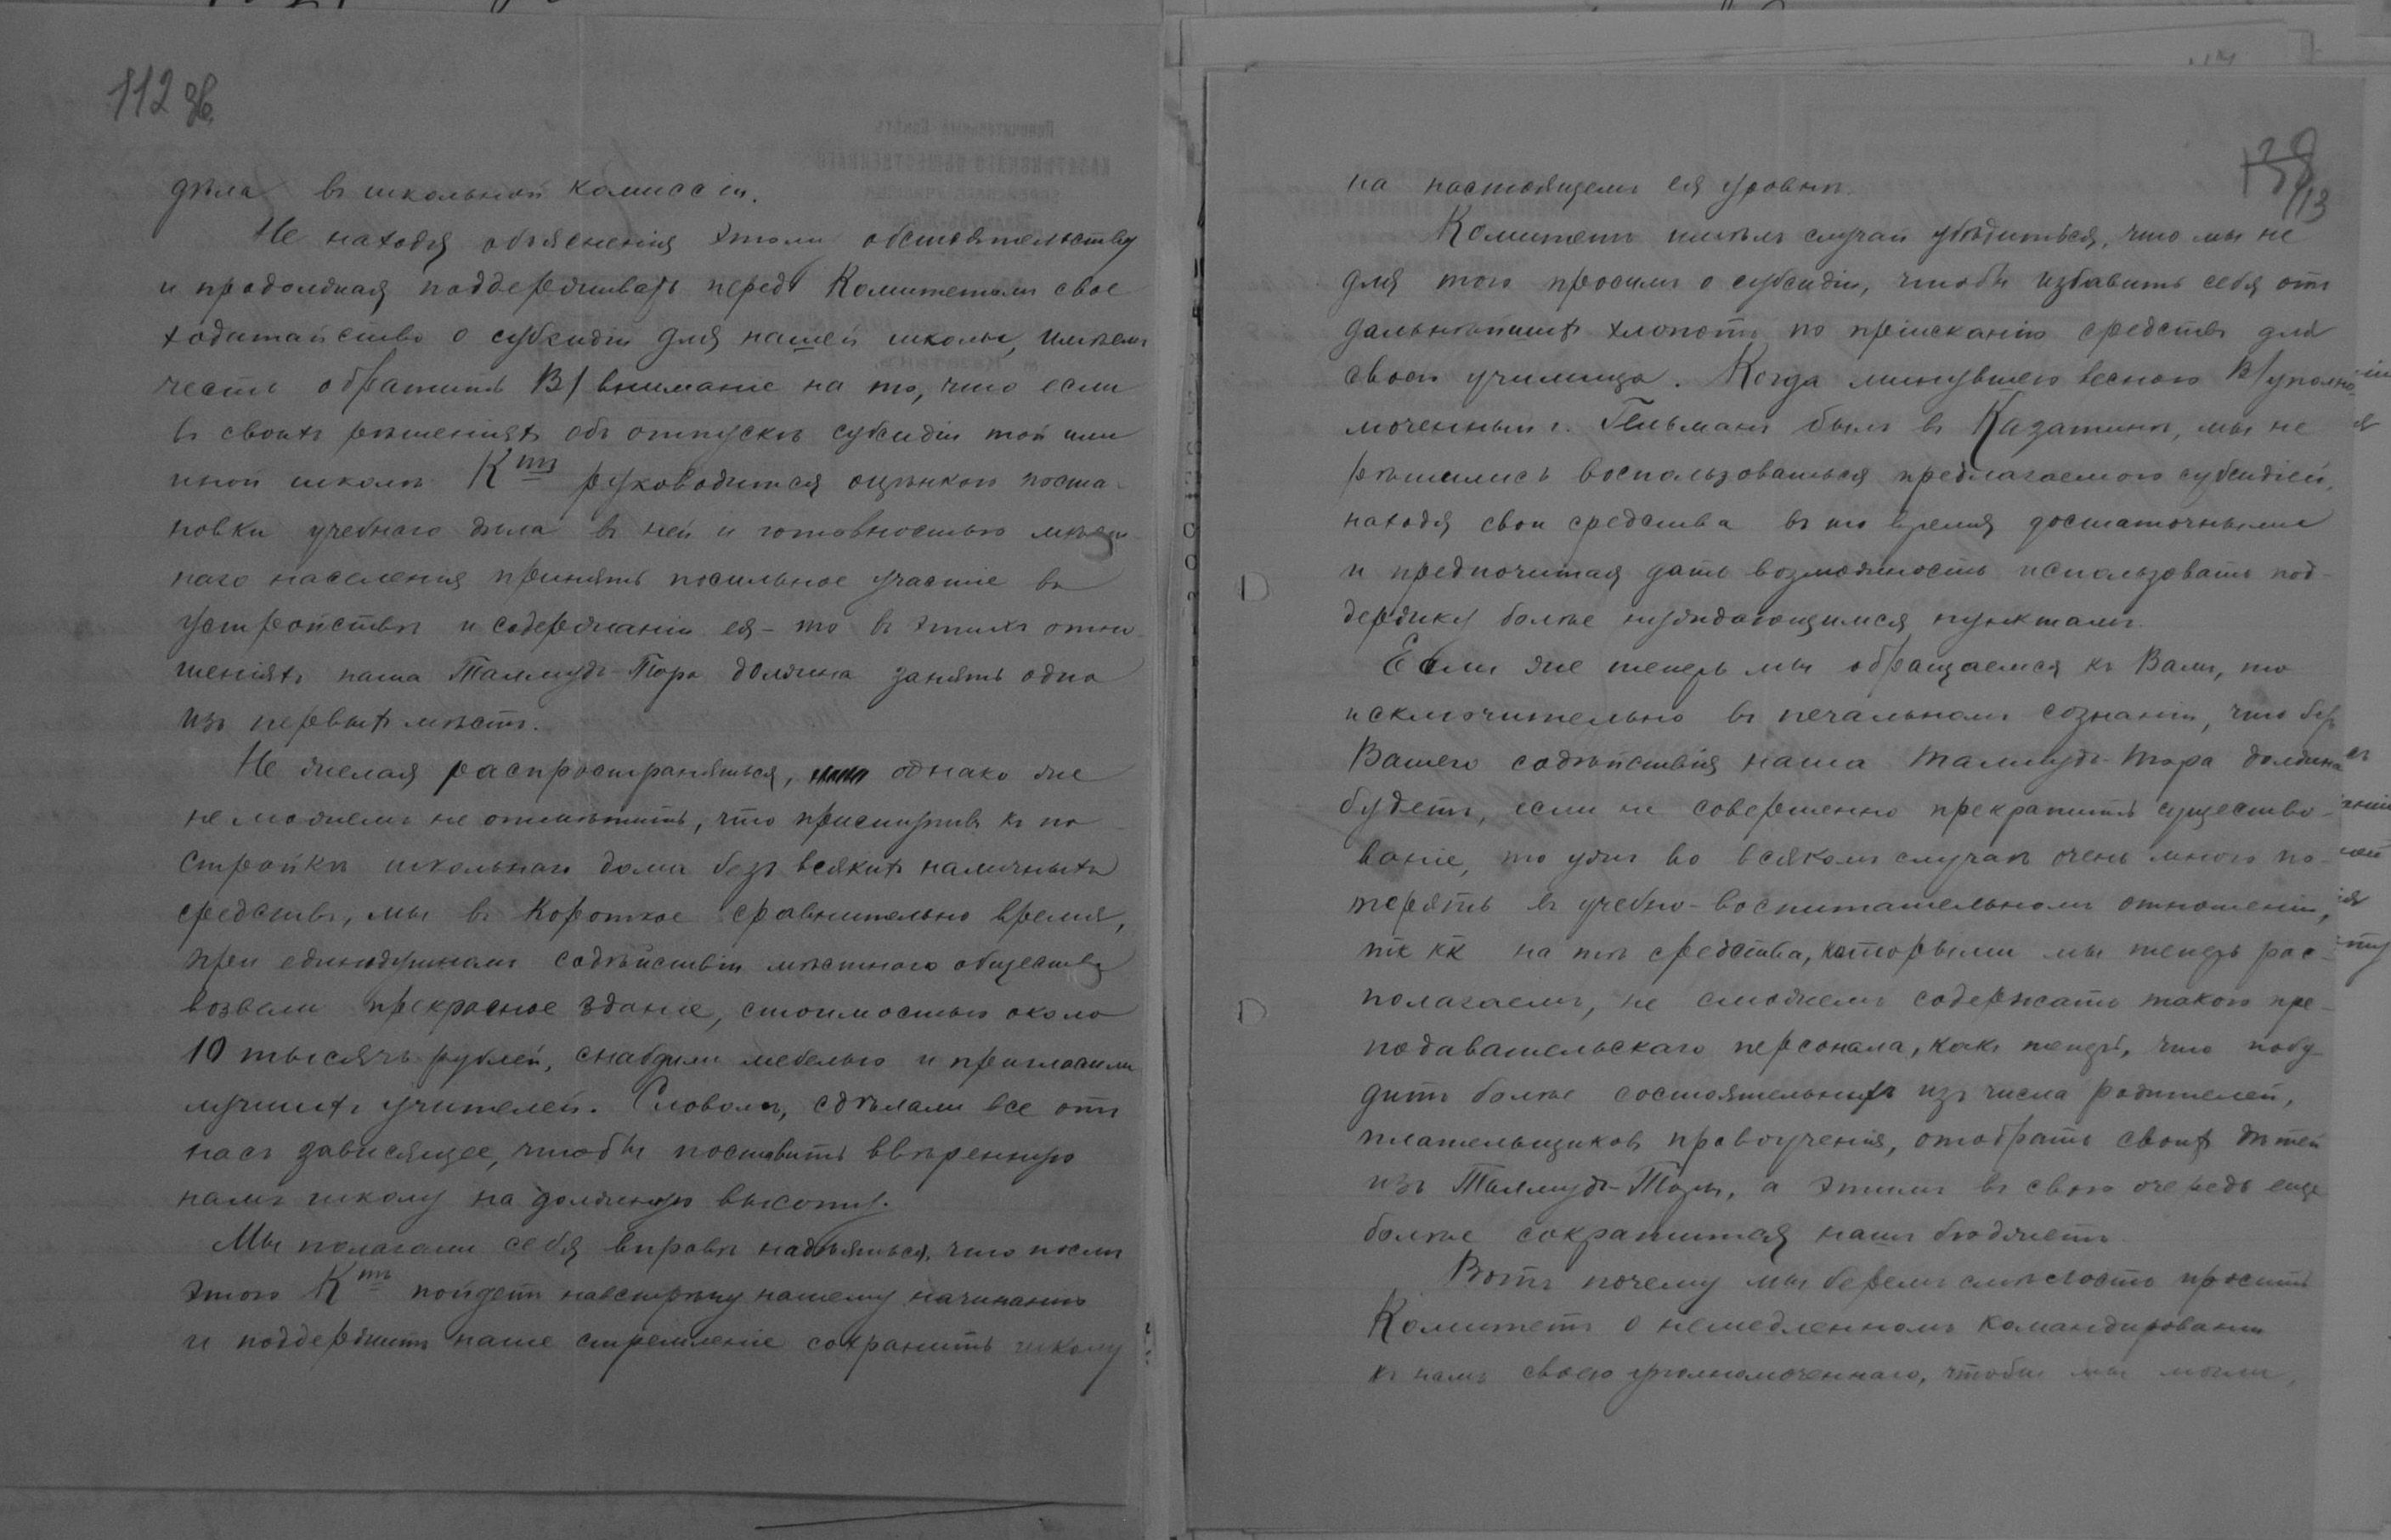 112 об.
дѣла въ школьной комиссіи.
Не находя объясненія этому обстоятельству
и продолжая поддерживать передъ Комитетомъ свое
ходатайство о субсидіи для нашей школы, имѣемъ
честь обратить В/ вниманіе на то, что если
въ своихъ рѣшеніяхъ объ отпускѣ субсидіи той или
иной школѣ Ктъ руководится оцѣнкою поста-
новки учебнаго дѣла въ ней и готовностью мѣст-
наго населенія принять посильное участіе въ
устройствѣ и содержаніи ея - то въ этихъ отно-
шеніяхъ наша Талмудъ-Тора должна занять одно
изъ первыхъ мѣстъ.
Не желая распространяться, однако же
не можемъ не отмѣтить, что приступивъ къ по-
стройкѣ школьнаго дома безъ всякихъ наличныхъ
средствъ, мы въ короткое сравнительно время,
при единодушномъ содѣйствіи мѣстнаго общества
возвели прекрасное зданіе, стоимостью около
10 тысячъ рублей, снабдили мебелью и пригласили
лучшихъ учителей. Словомъ, сдѣлали все отъ
насъ зависящее, чтобы поставить ввѣренную
намъ школу на должную высоту.
Мы полагали себя вправѣ надѣяться, что послѣ
этого Ктъ пойдетъ навстрѣчу нашему начинанію
и поддержитъ наше стремленіе сохранить школу
138
113
на настоящемъ ея уровнѣ.
Комитетъ имѣлъ случай убѣдиться, что мы не
для того просимъ о субсидіи, чтобы избавить себя отъ
дальнѣйшихъ хлопотъ по пріисканію средствъ для
своего училища. Когда минувшею весною В/уполно-
моченный г. Гельманъ былъ въ Казатинѣ, мы не
рѣшились воспользоваться предлагаемою субсидіей,
находя свои средства въ то время достаточными
и предпочитая дать возможность использовать под-
держку болѣе нуждающимся пунктамъ.
Если же теперь мы обращаемся къ Вамъ, то
исключительно въ печальномъ сознаніи, что безъ
Вашего содѣйствія наша Талмудъ-Тора должна
будетъ, если не совершенно прекратить существо-
ваніе, то ужъ во всякомъ случаѣ очень много по-
терять въ учебно-воспитательномъ отношеніи,
тк кк на тѣ средства, которыми мы теперь рас-
полагаемъ, не сможемъ содержать такого пре-
подавательскаго персонала, какъ теперь, что побу-
дитъ болѣе состоятельныхъ изъ числа родителей,
плательщиковъ правоученія, отобрать своихъ дѣтей
изъ Талмудъ-Торы, а этимъ въ свою очередь еще
болѣе сократится нашъ бюджетъ.
Вотъ почему мы беремъ смѣлость просить
Комитетъ о немедленномъ командированіи
къ намъ своего уполномоченнаго, чтобы мы могли,